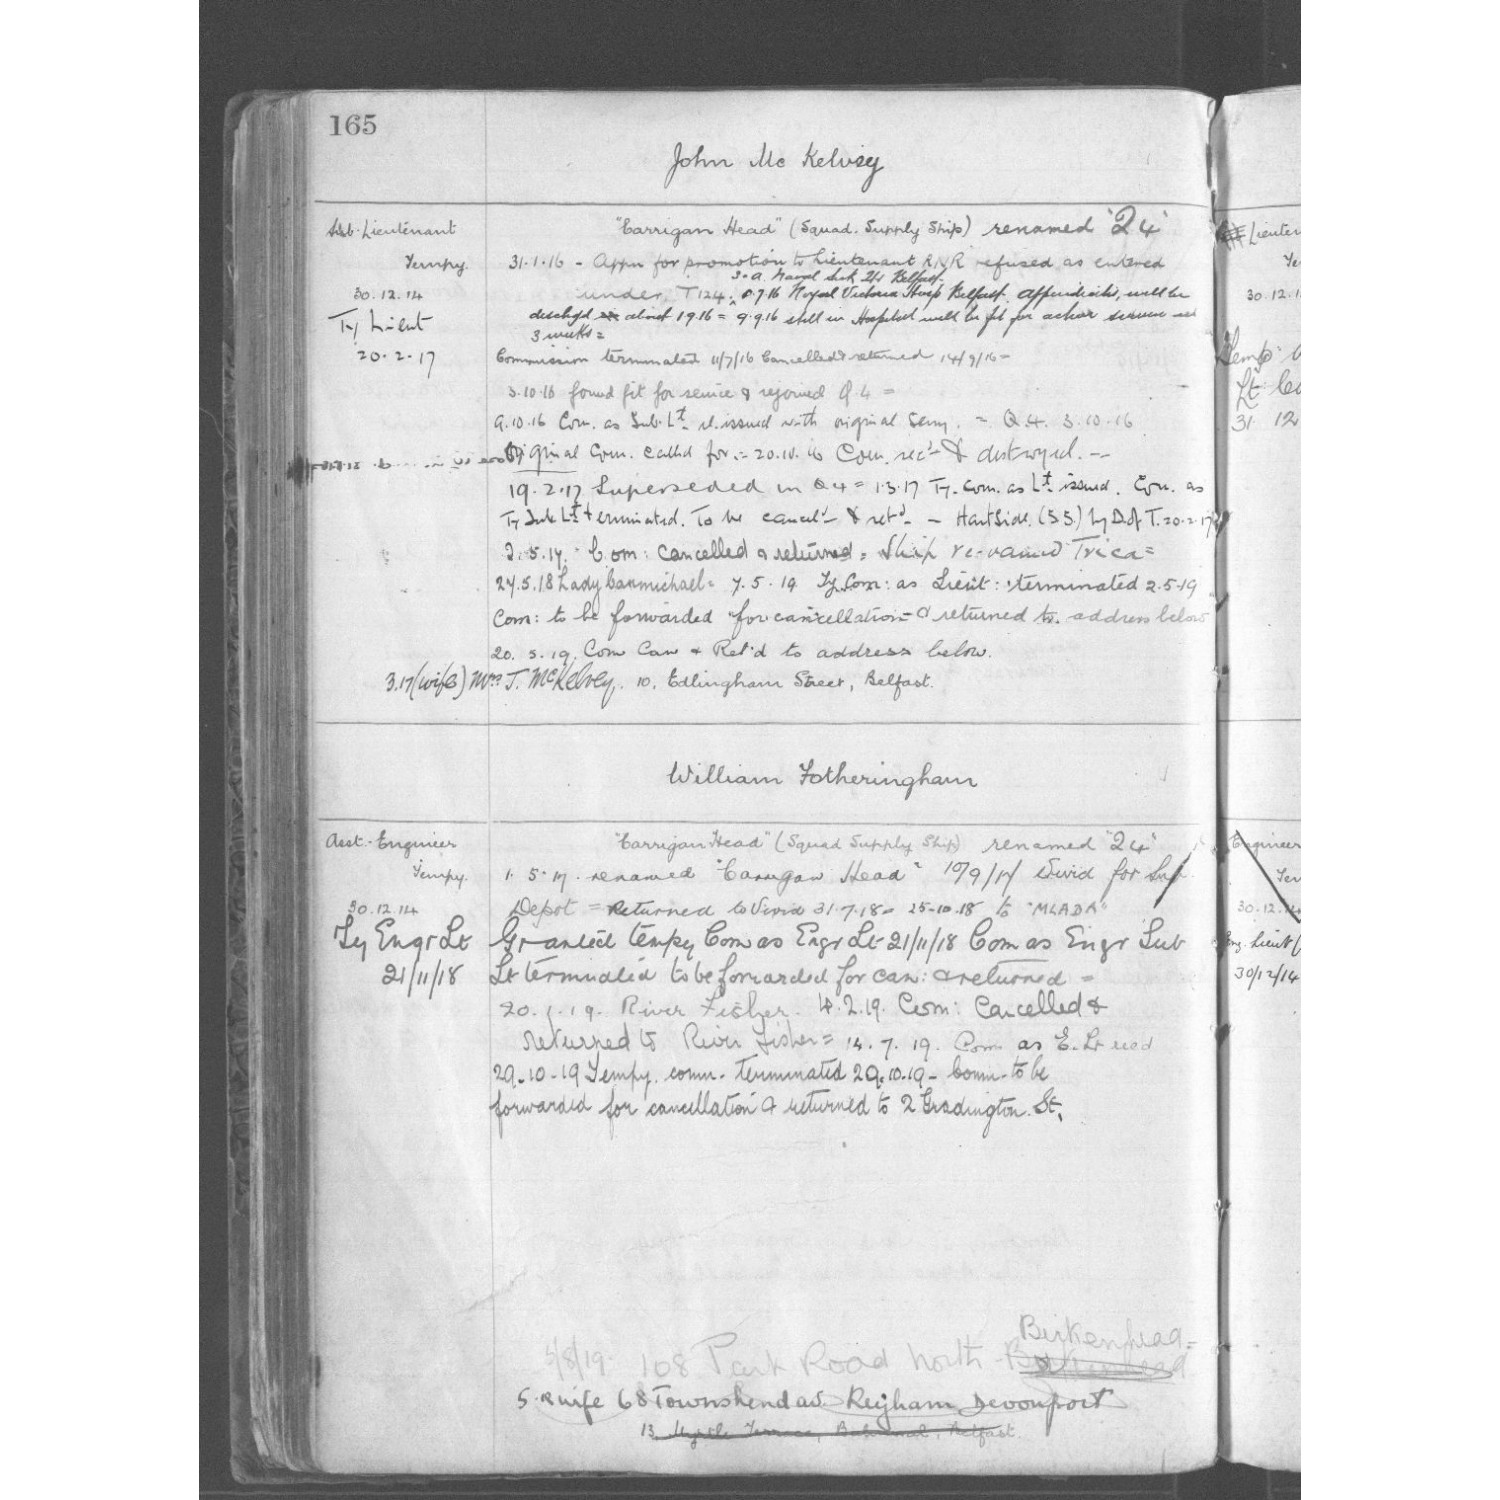 165
John Mc Kelvey
Sub-Lieutenant
Tempy.
30.12.14
Ty Lieut
20.2.17
"Carrigan Head" (Squad. Supply Ship) renamed "Q4"
31.1.16 - Appn for promotion to Lieutenant RNR refused as entered
3.a. Naval Sick Qtr Belfast.
under T124. 8.7.16 Royal Victoria Hosp Belfast. Appendicitis, will be
dischgd about 1.9.16 = 9.9.16 still in Hospital will be fit for active service in
3 weeks =
Commission terminated 11/7/16 Cancelled & returned 14/9/16 -
3.10.16 found fit for service & rejoined Q.4 =
9.10.16 Com. as Sub. Lt re.issued with original Seny. = Q.4. 3.10.16
Original Com. called for :- 20.10.16 Com. rec'd & destroyed. --
19.2.17 Superseded in Q4 = 1.3.17 Ty. Com. as Lt issued. Com. as
Ty Sub Lt terminated. To be cancel'd & ret'd - Hartside. (S.S.) by D of T. 20.2.17
2.5.17. Com: Cancelled & returned = Ship re-named Trica =
24.5.18 Lady Carmichael = 7.5.19 Ty Com: as Lieut: terminated 2.5.19
Com: to be forwarded for cancellation & returned to address below
20.5.19. Com Can & Ret'd to address below.
3.17 (wife) Mrs J. McKelvey, 10, Edlingham Street, Belfast.
William Fotheringham
Asst. Engineer
Tempy.
30.12.14
Ty Engr Lt
21/11/18
"Carrigan Head" (Squad Supply Ship) renamed "Q4"
1.5.17. renamed "Carrigan Head" 10/9/17 Vivid for Sub.
Depot = Returned to Vivid 31.7.18 = 25-10.18 to "MLADA"
Granted tempy Com as Engr Lt 21/11/18 Com as Engr Sub
Lt terminated to be forwarded for can: & returned =
20.1.19. River Fisher. 4.2.19. Com: Cancelled &
returned to River Fisher = 14.7.19. Com as E. Lt
29-10-19 Tempy. comn. terminated 29.10.19 - Comn. to be
forwarded for cancellation & returned to 2 St,
Birkenhead =
5/8/19. 108 Park Road North - Birkenhead
wife 68 Townshend av. Keyham Devonport
13, Myrtle Terrace, Belfast.
Lieuten
30.12.1
Temp
Lt Co
31 12
Engineer
30.12.14
Eng. Lieut
30/12/14